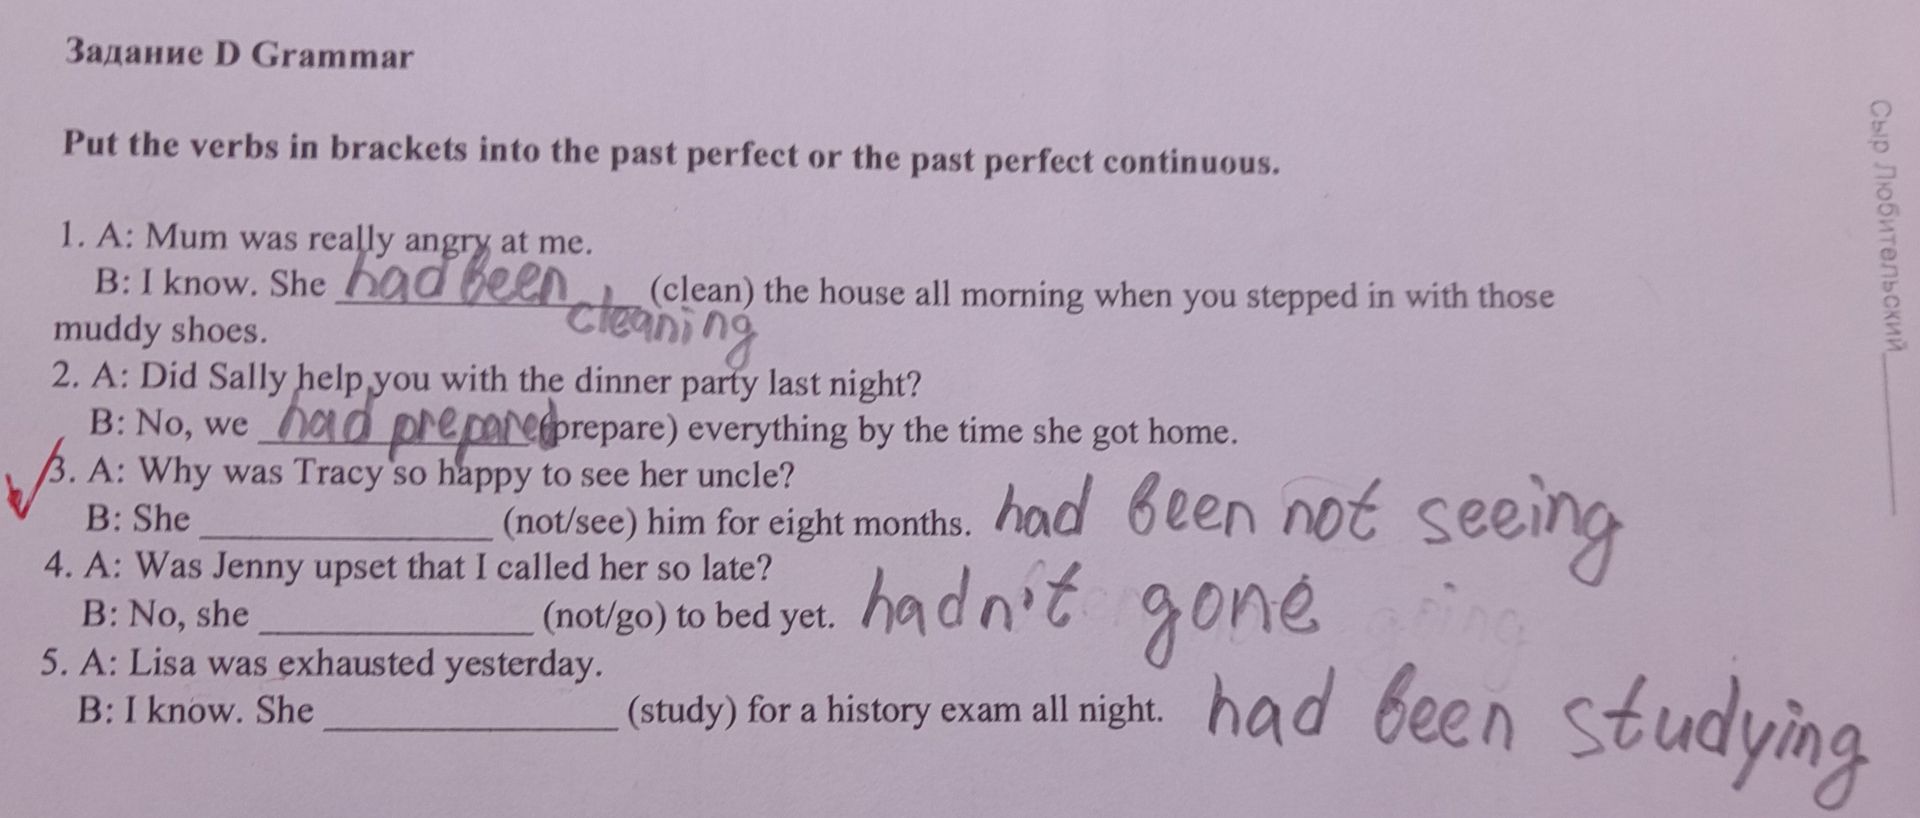 Задание D Grammar
Put the verbs in brackets into the past perfect or the past perfect continuous.
1. A: Mum was really angry at me.
B: I know. She had been cleaning (clean) the house all morning when you stepped in with those
muddy shoes.
2. A: Did Sally help you with the dinner party last night?
B: No, we had prepared (prepare) everything by the time she got home.
3. A: Why was Tracy so happy to see her uncle?
B: She ____________ (not/see) him for eight months. had been not seeing
4. A: Was Jenny upset that I called her so late?
B: No, she ____________ (not/go) to bed yet. hadn't gone
5. A: Lisa was exhausted yesterday.
B: I know. She ____________ (study) for a history exam all night. had been studying
Сыр Любительский